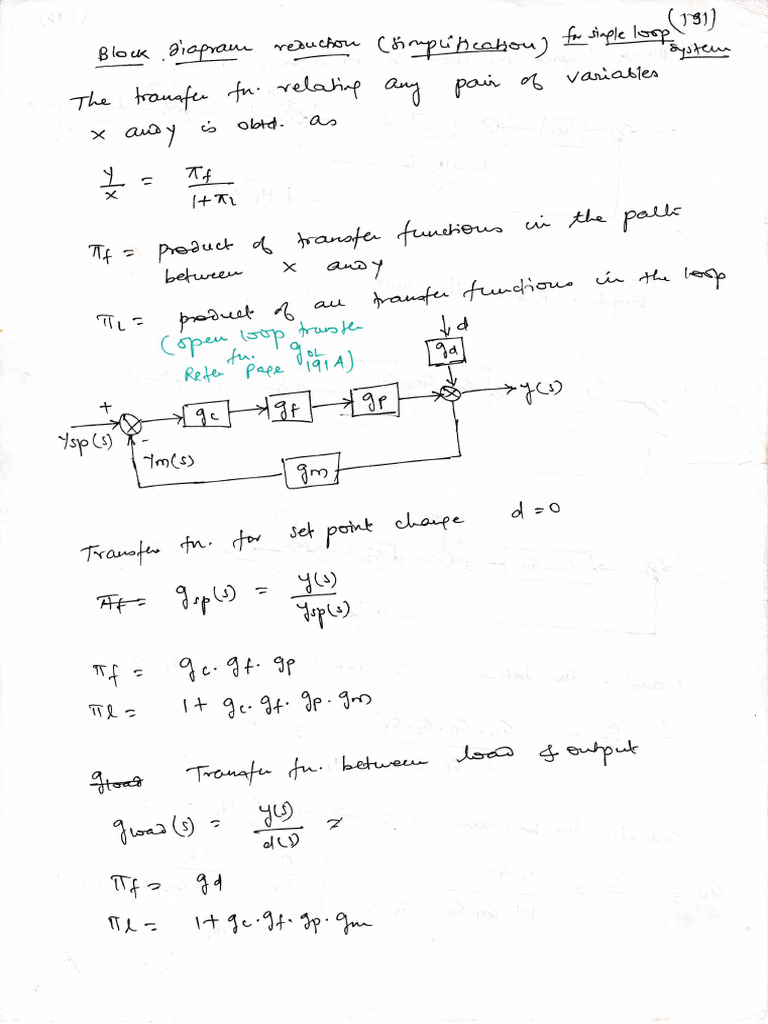 (191)
Block diagram reduction (simplification) for simple loop system
The transfer fn. relating any pair of variables
x and y is obtd. as
y/x = πf / 1+πl
πf = product of transfer functions in the path
between x and y
πl = product of all transfer functions in the loop
(open loop transfer
fn. gOL
Refer Page 191A)
d
gd
+ gc gf gp y(s)
ysp(s) -
ym(s)
gm
Transfer fn. for set point change d=0
πf = gsp(s) = y(s)/ysp(s)
πf = gc. gf. gp
πl = 1+ gc. gf. gp. gm
gload Transfer fn. between load & output
gload(s) = y(s)/d(s) =
πf = gd
πl = 1+ gc.gf. gp. gm